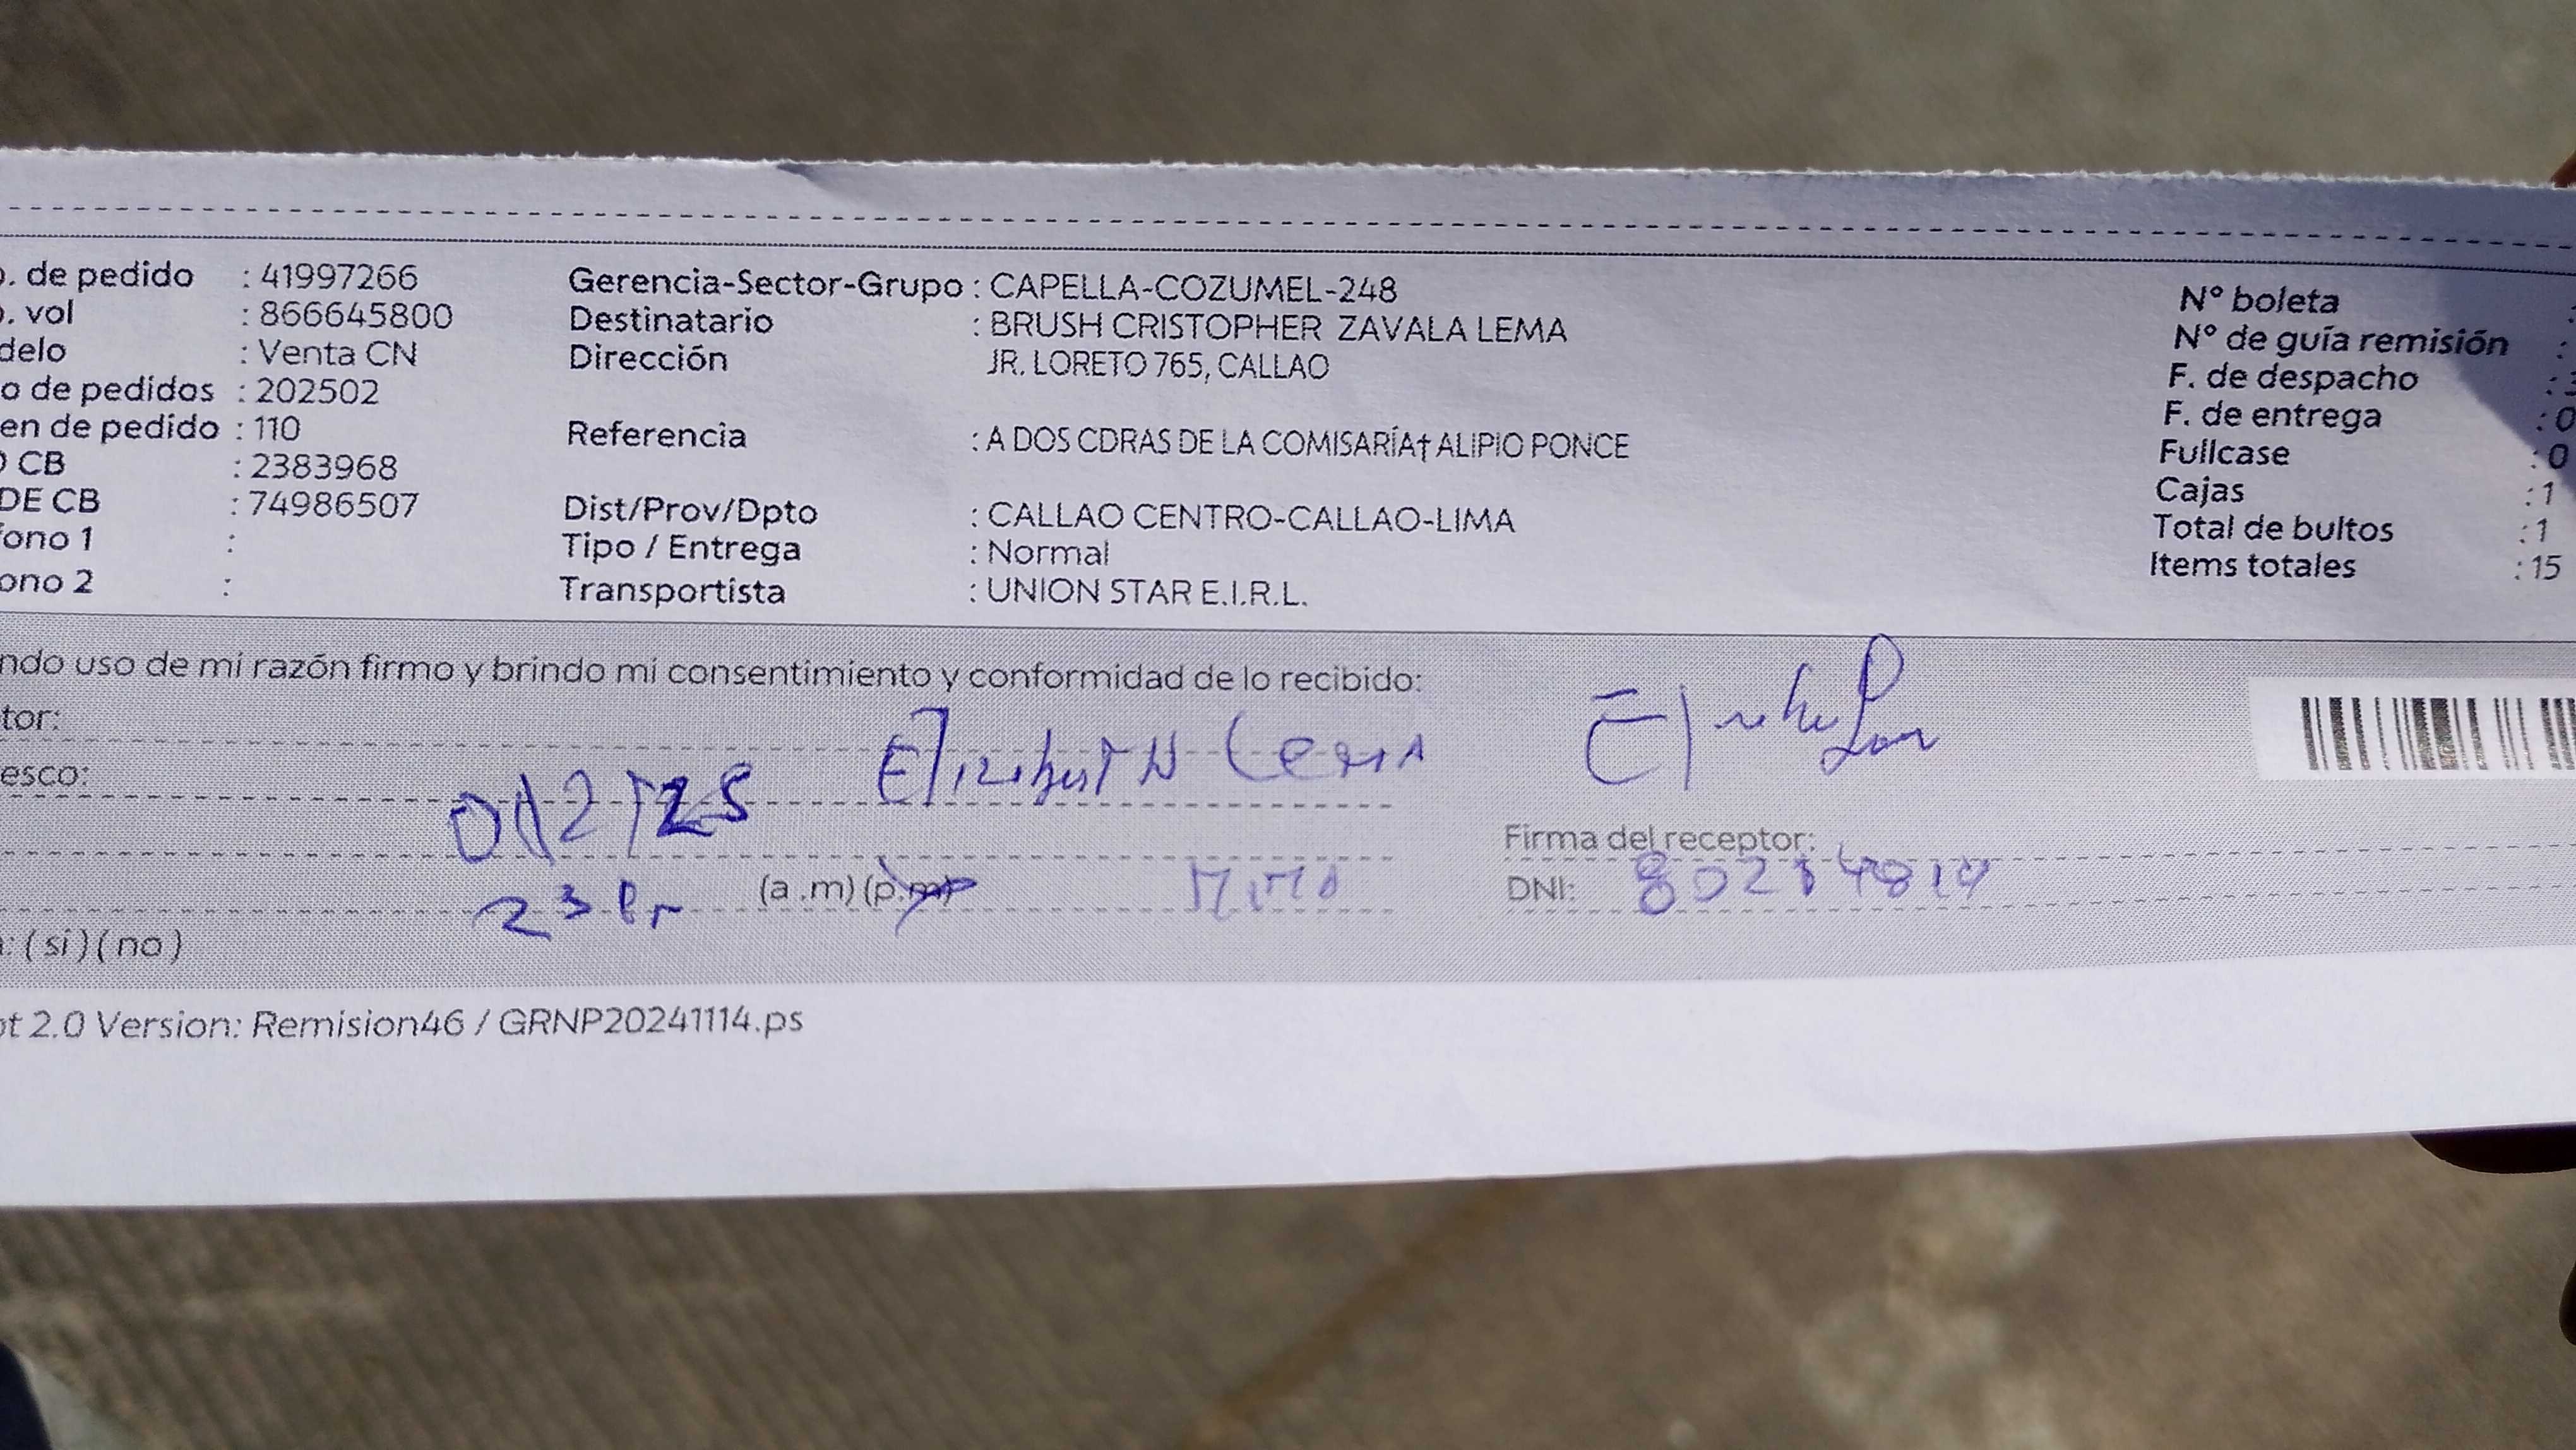 . de pedido : 41997266
. vol : 866645800
delo : Venta CN
o de pedidos : 202502
en de pedido : 110
CB : 2383968
DE CB : 74986507
fono 1 :
ono 2 :
Gerencia-Sector-Grupo : CAPELLA-COZUMEL-248
Destinatario : BRUSH CRISTOPHER ZAVALA LEMA
Dirección JR. LORETO 765, CALLAO
Referencia : A DOS CDRAS DE LA COMISARÍA† ALIPIO PONCE
Dist/Prov/Dpto : CALLAO CENTRO-CALLAO-LIMA
Tipo / Entrega : Normal
Transportista : UNION STAR E.I.R.L.
N° boleta :
N° de guía remisión :
F. de despacho :
F. de entrega : 0
Fullcase : 0
Cajas : 1
Total de bultos : 1
Items totales : 15
ndo uso de mi razón firmo y brindo mi consentimiento y conformidad de lo recibido:
tor:
esco:
Firma del receptor:
(a .m) (p.m)
DNI:
: ( si ) ( no )
pt 2.0 Version: Remision46 / GRNP20241114.ps